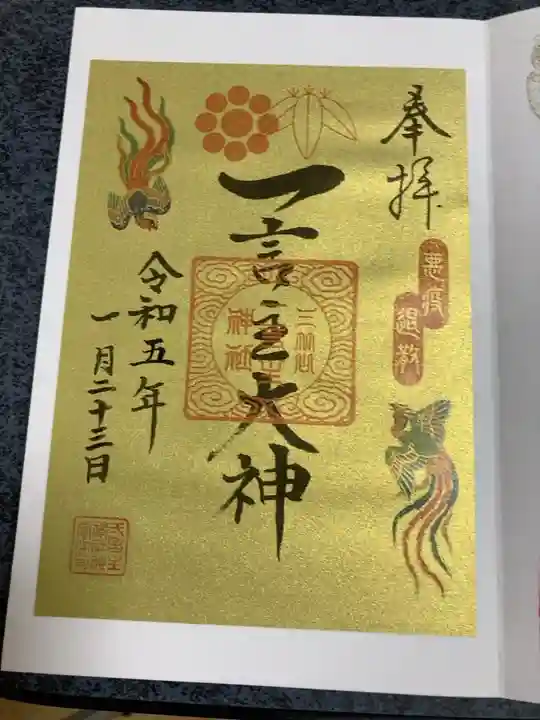 奉拝
悪疫
退散
一言主大神
三竈
神社
令和五年
一月二十三日